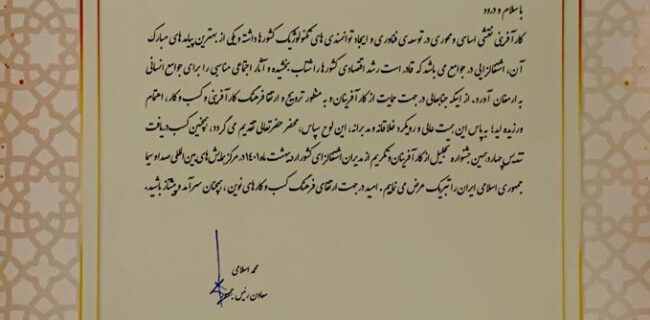 با سلام و درود
کارآفرینی نقشی اساسی و محوری در توسعه ی فناوری و ایجاد توانمندی های تکنولوژیک کشورها داشته و یکی از بهترین پیامدهای مبارک
آن، اشتغالزایی در جوامع می باشد که قادر است رشد اقتصادی کشورها را شتاب بخشیده و آثار اجتماعی مناسبی را برای جوامع انسانی
به ارمغان آورد. از اینکه جنابعالی در جهت حمایت از کارآفرینان و به منظور ترویج و ارتقا فرهنگ کارآفرینی و کسب و کار، اهتمام
ورزیده اید، به پاس این همت عالی و رویکرد خلاقانه و مدبرانه، این لوح سپاس، محضر حضرتعالی تقدیم می گردد، همچنین کسب دریافت
تندیس چهاردهمین جشنواره تجلیل از کارآفرینان و تکریم از مدیران اشتغالزای کشور اردیبهشت ماه ۱۴۰۱ در مرکز همایش های بین المللی صدا و سیما
جمهوری اسلامی ایران را تبریک عرض می نمایم. امید در جهت ارتقای فرهنگ کسب و کارهای نوین، همچنان سرآمد و پیشتاز باشید.
محمد اسلامی
معاون رئیس جمهور